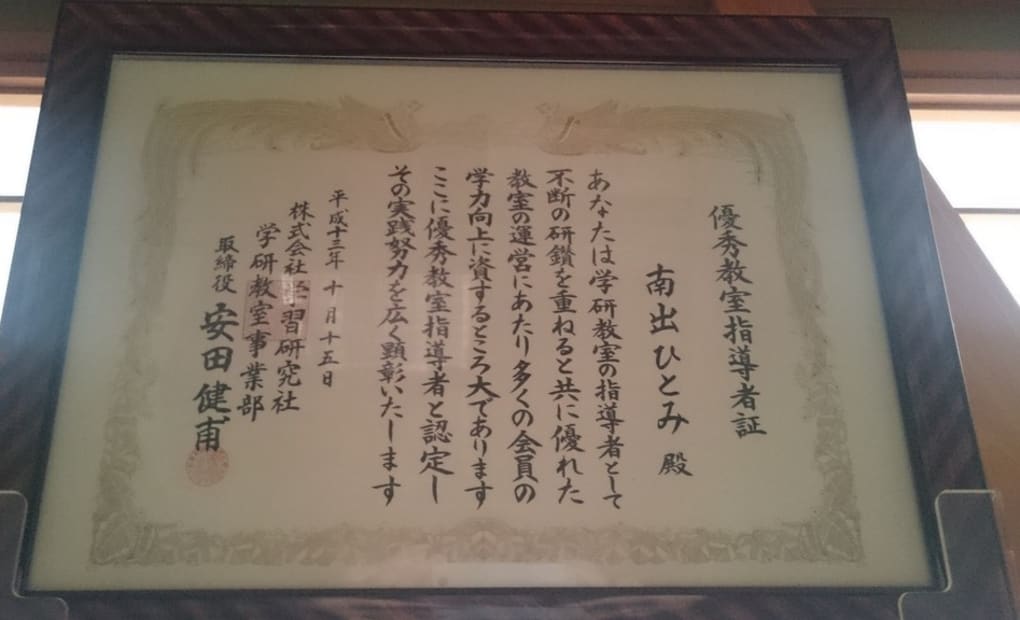 優秀教室指導者証
南出ひとみ 殿
あなたは学研教室の指導者として
不断の研鑽を重ねると共に優れた
教室の運営にあたり多くの会員の
学力向上に資するところ大であります
ここに優秀教室指導者と認定し
その実践努力を広く顕彰いたします
平成十三年 十月十五日
株式会社学習研究社
学研教室事業部
取締役 安田健甫